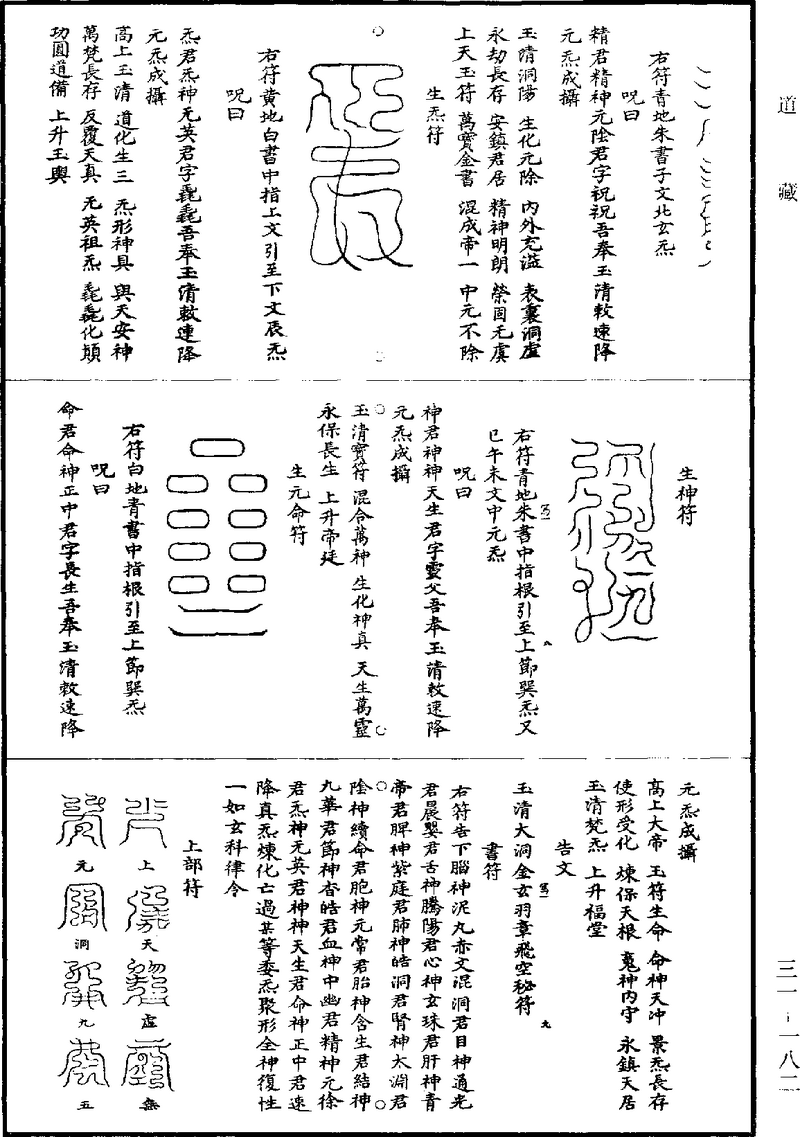 道藏
右符青地朱書子文北玄炁
呪曰
精君精神元陰君字祝祝吾奉玉清敕速降
元炁成攝
玉清洞陽 生化元除 內外充溢 表裏洞虛
永劫長存 安鎮君居 精神明朗 榮固无虞
上天玉符 萬寶金書 混成帝一 中元不除
生炁符
右符黃地白書中指上文引至下文辰炁
呪曰
炁君炁神无英君字毿毿吾奉玉清敕速降
元炁成攝
高上玉清 道化生三 炁形神具 與天安神
萬梵長存 反覆天真 无英祖炁 毿毿化顛
功圓道備 上升玉輿
生神符
右符青地朱書中指根引至上節巽炁又
巳午未文中元炁
呪曰
神君神神天生君字靈父吾奉玉清敕速降
元炁成攝
玉清寶符 混合萬神 生化神真 天生萬靈
永保長生 上升帝廷
生元命符
右符白地青書中指根引至上節巽炁
呪曰
命君命神正中君字長生吾奉玉清敕速降
元炁成攝
高上大帝 玉符生命 命神天沖 景炁長存
使形受化 煉保天根 魂神內守 永鎮天居
玉清梵炁 上升福堂
告文
玉清大洞金玄羽章飛空秘符
書符
右符告下腦神泥丸赤文混洞君目神通光
君晨嬰君舌神騰陽君心神玄珠君肝神青
帝君脾神紫庭君肺神皓洞君腎神太淵君
陰神續命君胞神元常君胎神含生君結神
九華君節神杳皓君血神中幽君精神元徐
君炁神无英君神神天生君命神正中君速
降真炁煉化亡過某等委炁聚形全神復性
一如玄科律令
上部符
上
天
虛
無
元
洞
九
五
三一－一八二